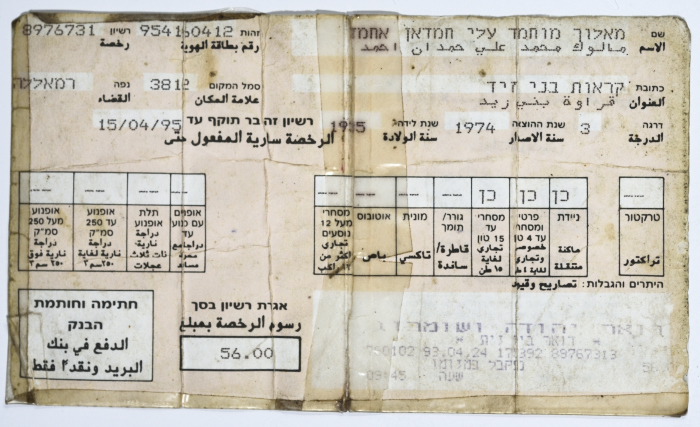 שם מאלוך מוחמד עלי חמדאן אחמד זהות 954160412 רשיון 8976731
الاسم مالوك محمد علي حمدان احمد رقم بطاقة الهوية رخصة
כתובת קראות בני זיד סמל המקום 3812 נפה רמאללה
العنوان قراوة بني زيد علامة المكان القضاء
דרגה 3 שנת ההוצאה 1974 שנת לידה רשיון זה בר תוקף עד 15/04/95
الدرجة سنة الاصدار سنة الولادة الرخصة سارية المفعول حتى
כן כן כן
טרקטור ניידת פרטי ומסחרי עד 4 טון מסחרי עד 15 טון גורר/ תומך מונית אוטובוס מסחרי מעל 12 נוסעים תלת אופנוע אופנוע עד 250 סמ"ק אופנוע מעל 250 סמ"ק
تراكتور ماكنة متنقلة خصوصي وتجاري لغاية تجاري لغاية ١٥ طن قاطرة/ ساندة تاكسي باص تجاري اكثر من ١٢ راكب دراجة نارية ذات ثلاث عجلات دراجة نارية لغاية ٢٥٠ سم٣ دراجة نارية فوق ٢٥٠ سم٣
היתרים והגבלות: تصاريح وقيود
אגרת רשיון בסך
رسوم الرخصة بمبلغ
56.00
חתימה וחותמת
הבנק
الدفع في بنك
البريد ونقدا فقط
דואר יהודה ושומרון
דואר ביר זית
93.04.24 17:392 89767313
נתקבל במזומן
שעה 09:45